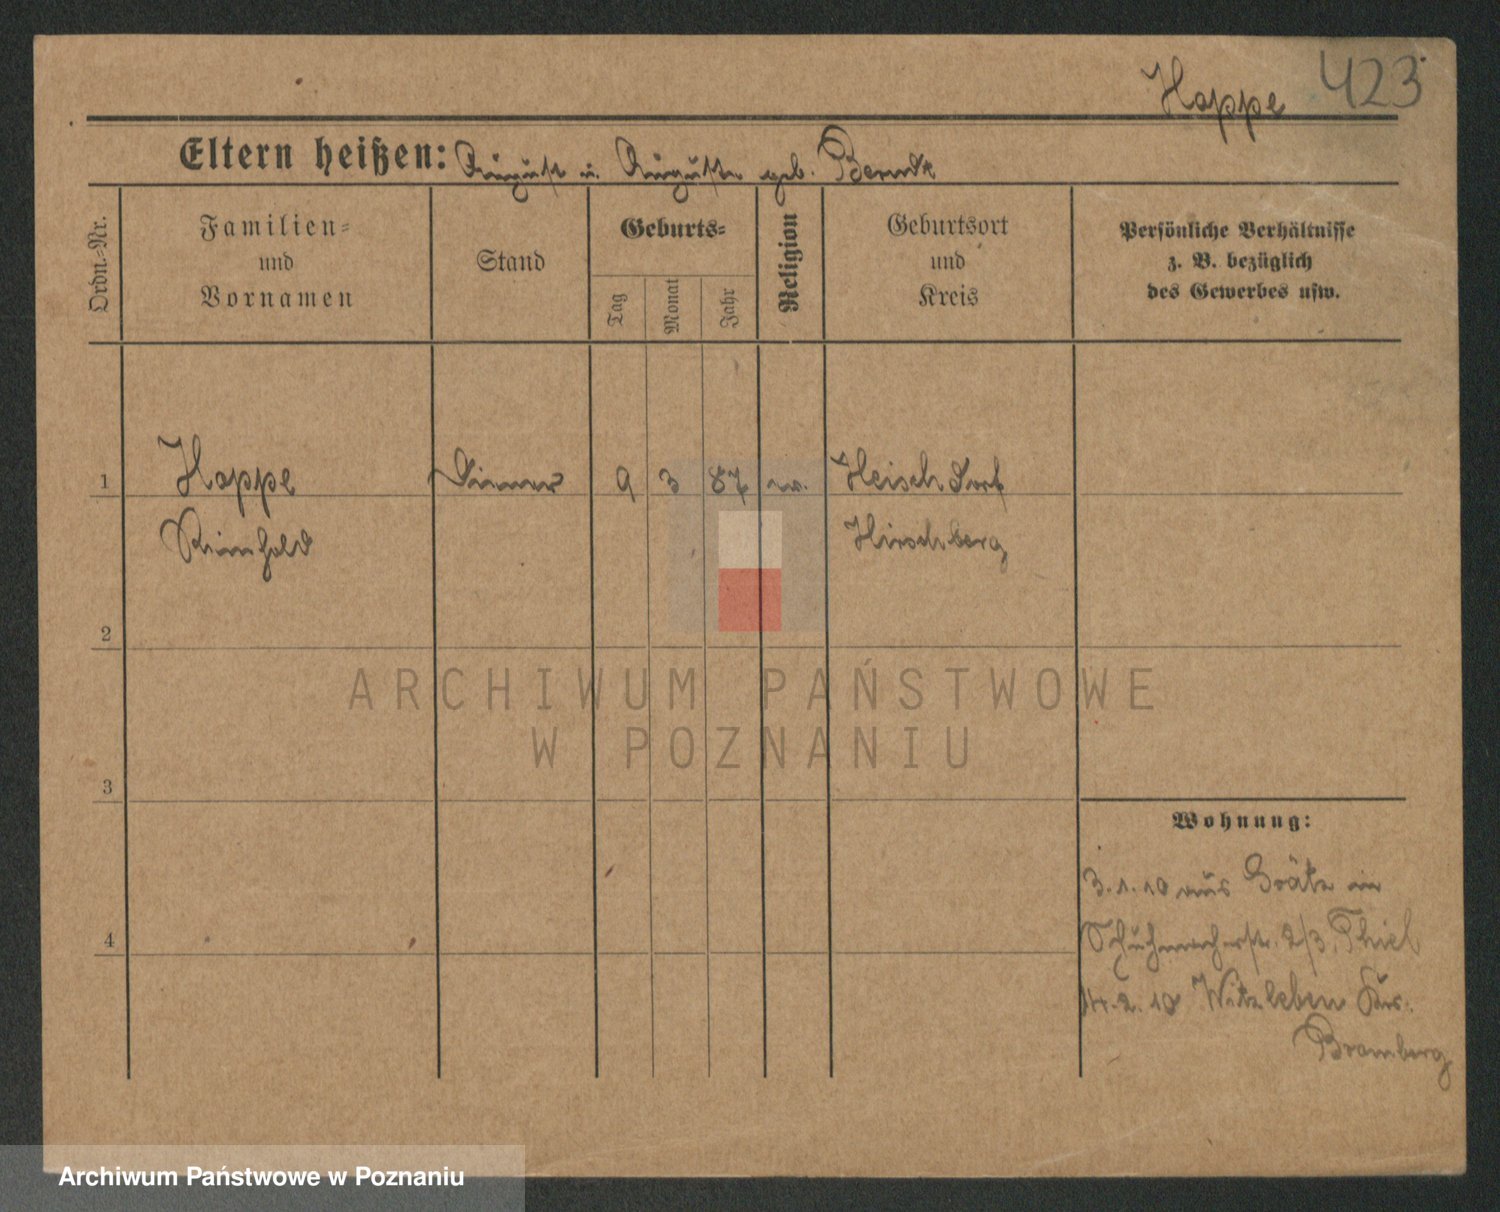 Hoppe 423
Eltern heißen: August u. Auguste geb. Berndt
Ordn.-Nr.
Familien-
und
Vornamen
Stand
Geburts-
Tag
Monat
Jahr
Religion
Geburtsort
und
Kreis
Persönliche Verhältnisse
z. B. bezüglich
des Gewerbes usw.
1 Hoppe Diener 9 3 87 ev. Heischdorf
Reinhold Hirschberg
2
3
Wohnung:
3.1.10 aus Grätz in
Schuhmacherstr. 2/3. Thiel
4
14.2.10 Witzleben Krs.
Bromberg
ARCHIWUM PAŃSTWOWE
W POZNANIU
Archiwum Państwowe w Poznaniu